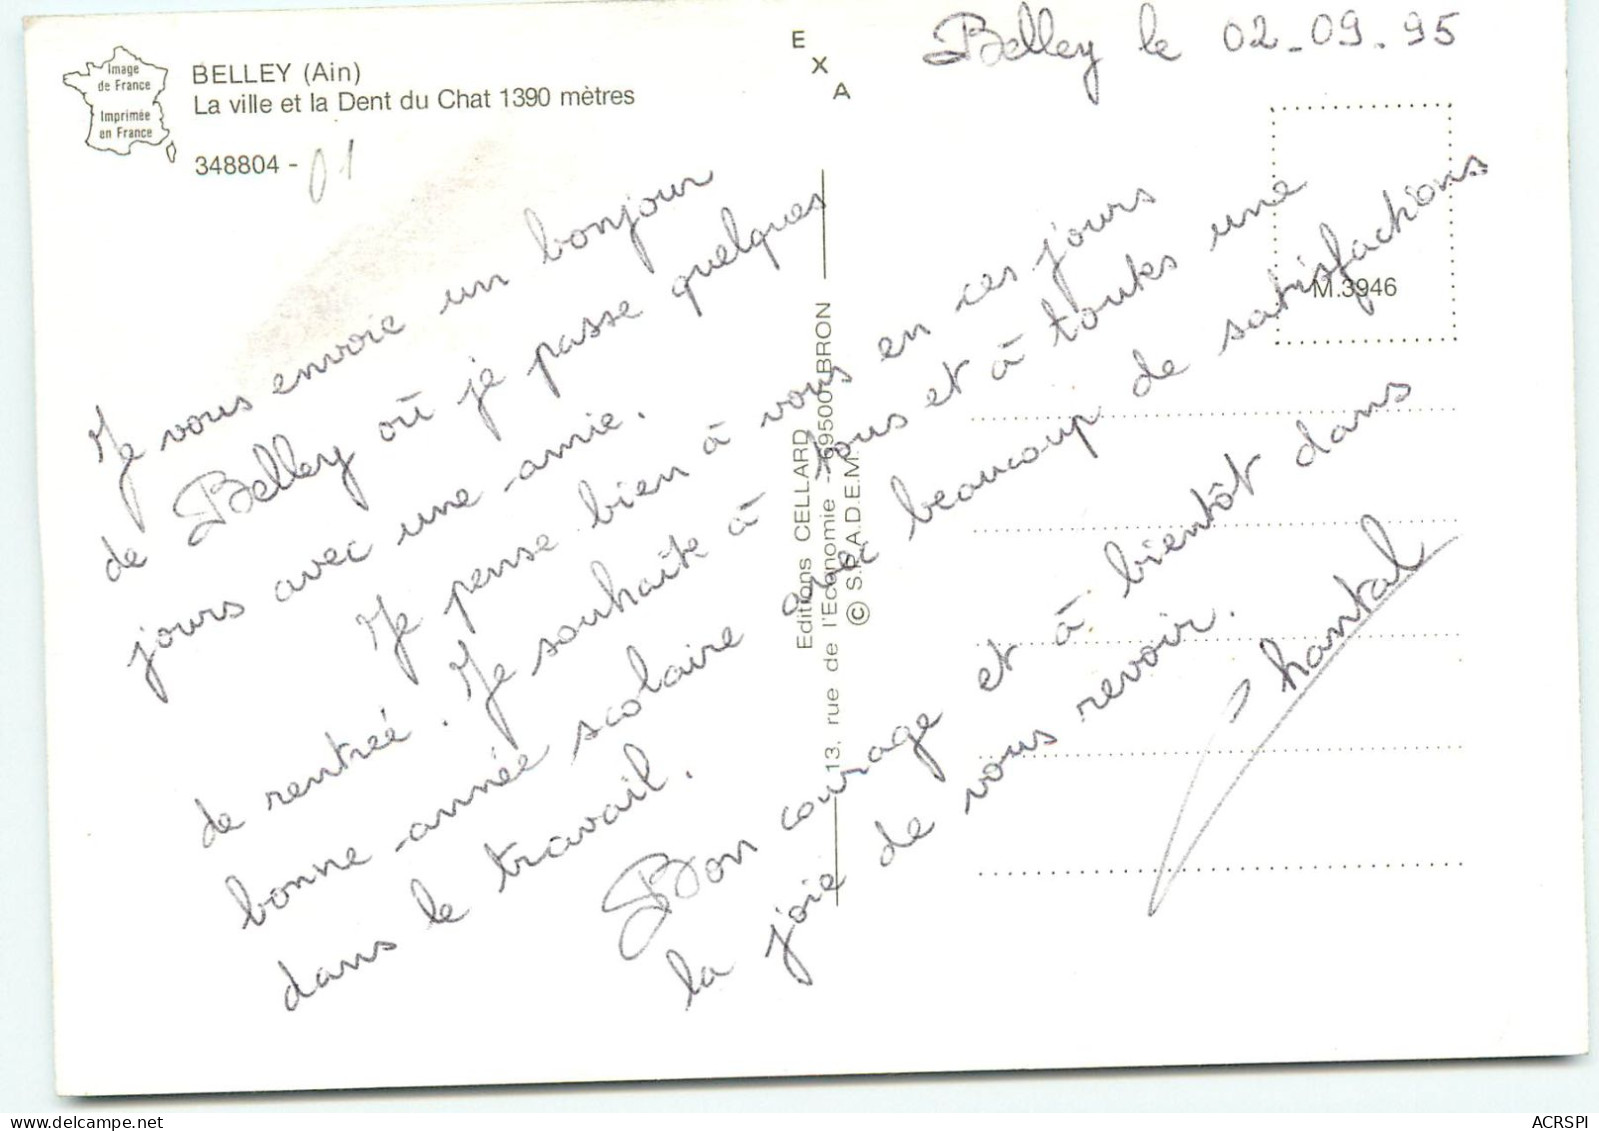 Image
de France
Imprimée
en France
BELLEY (Ain)
La ville et la Dent du Chat 1390 mètres
348804 - 01
E
X
A
Belley le 02-09.95
M.3946
Je vous envoie un bonjour
de Belley où je passe quelques
jours avec une amie.
Je pense bien à vous en ces jours
de rentrée. Je souhaite à tous et à toutes une
bonne année scolaire avec beaucoup de satisfactions
dans le travail.
Bon courage et à bientôt dans
la joie de vous revoir.
Chantal
Editions CELLARD
13, rue de l'Economie - 69500 BRON
© S.P.A.D.E.M.
ACRSPI